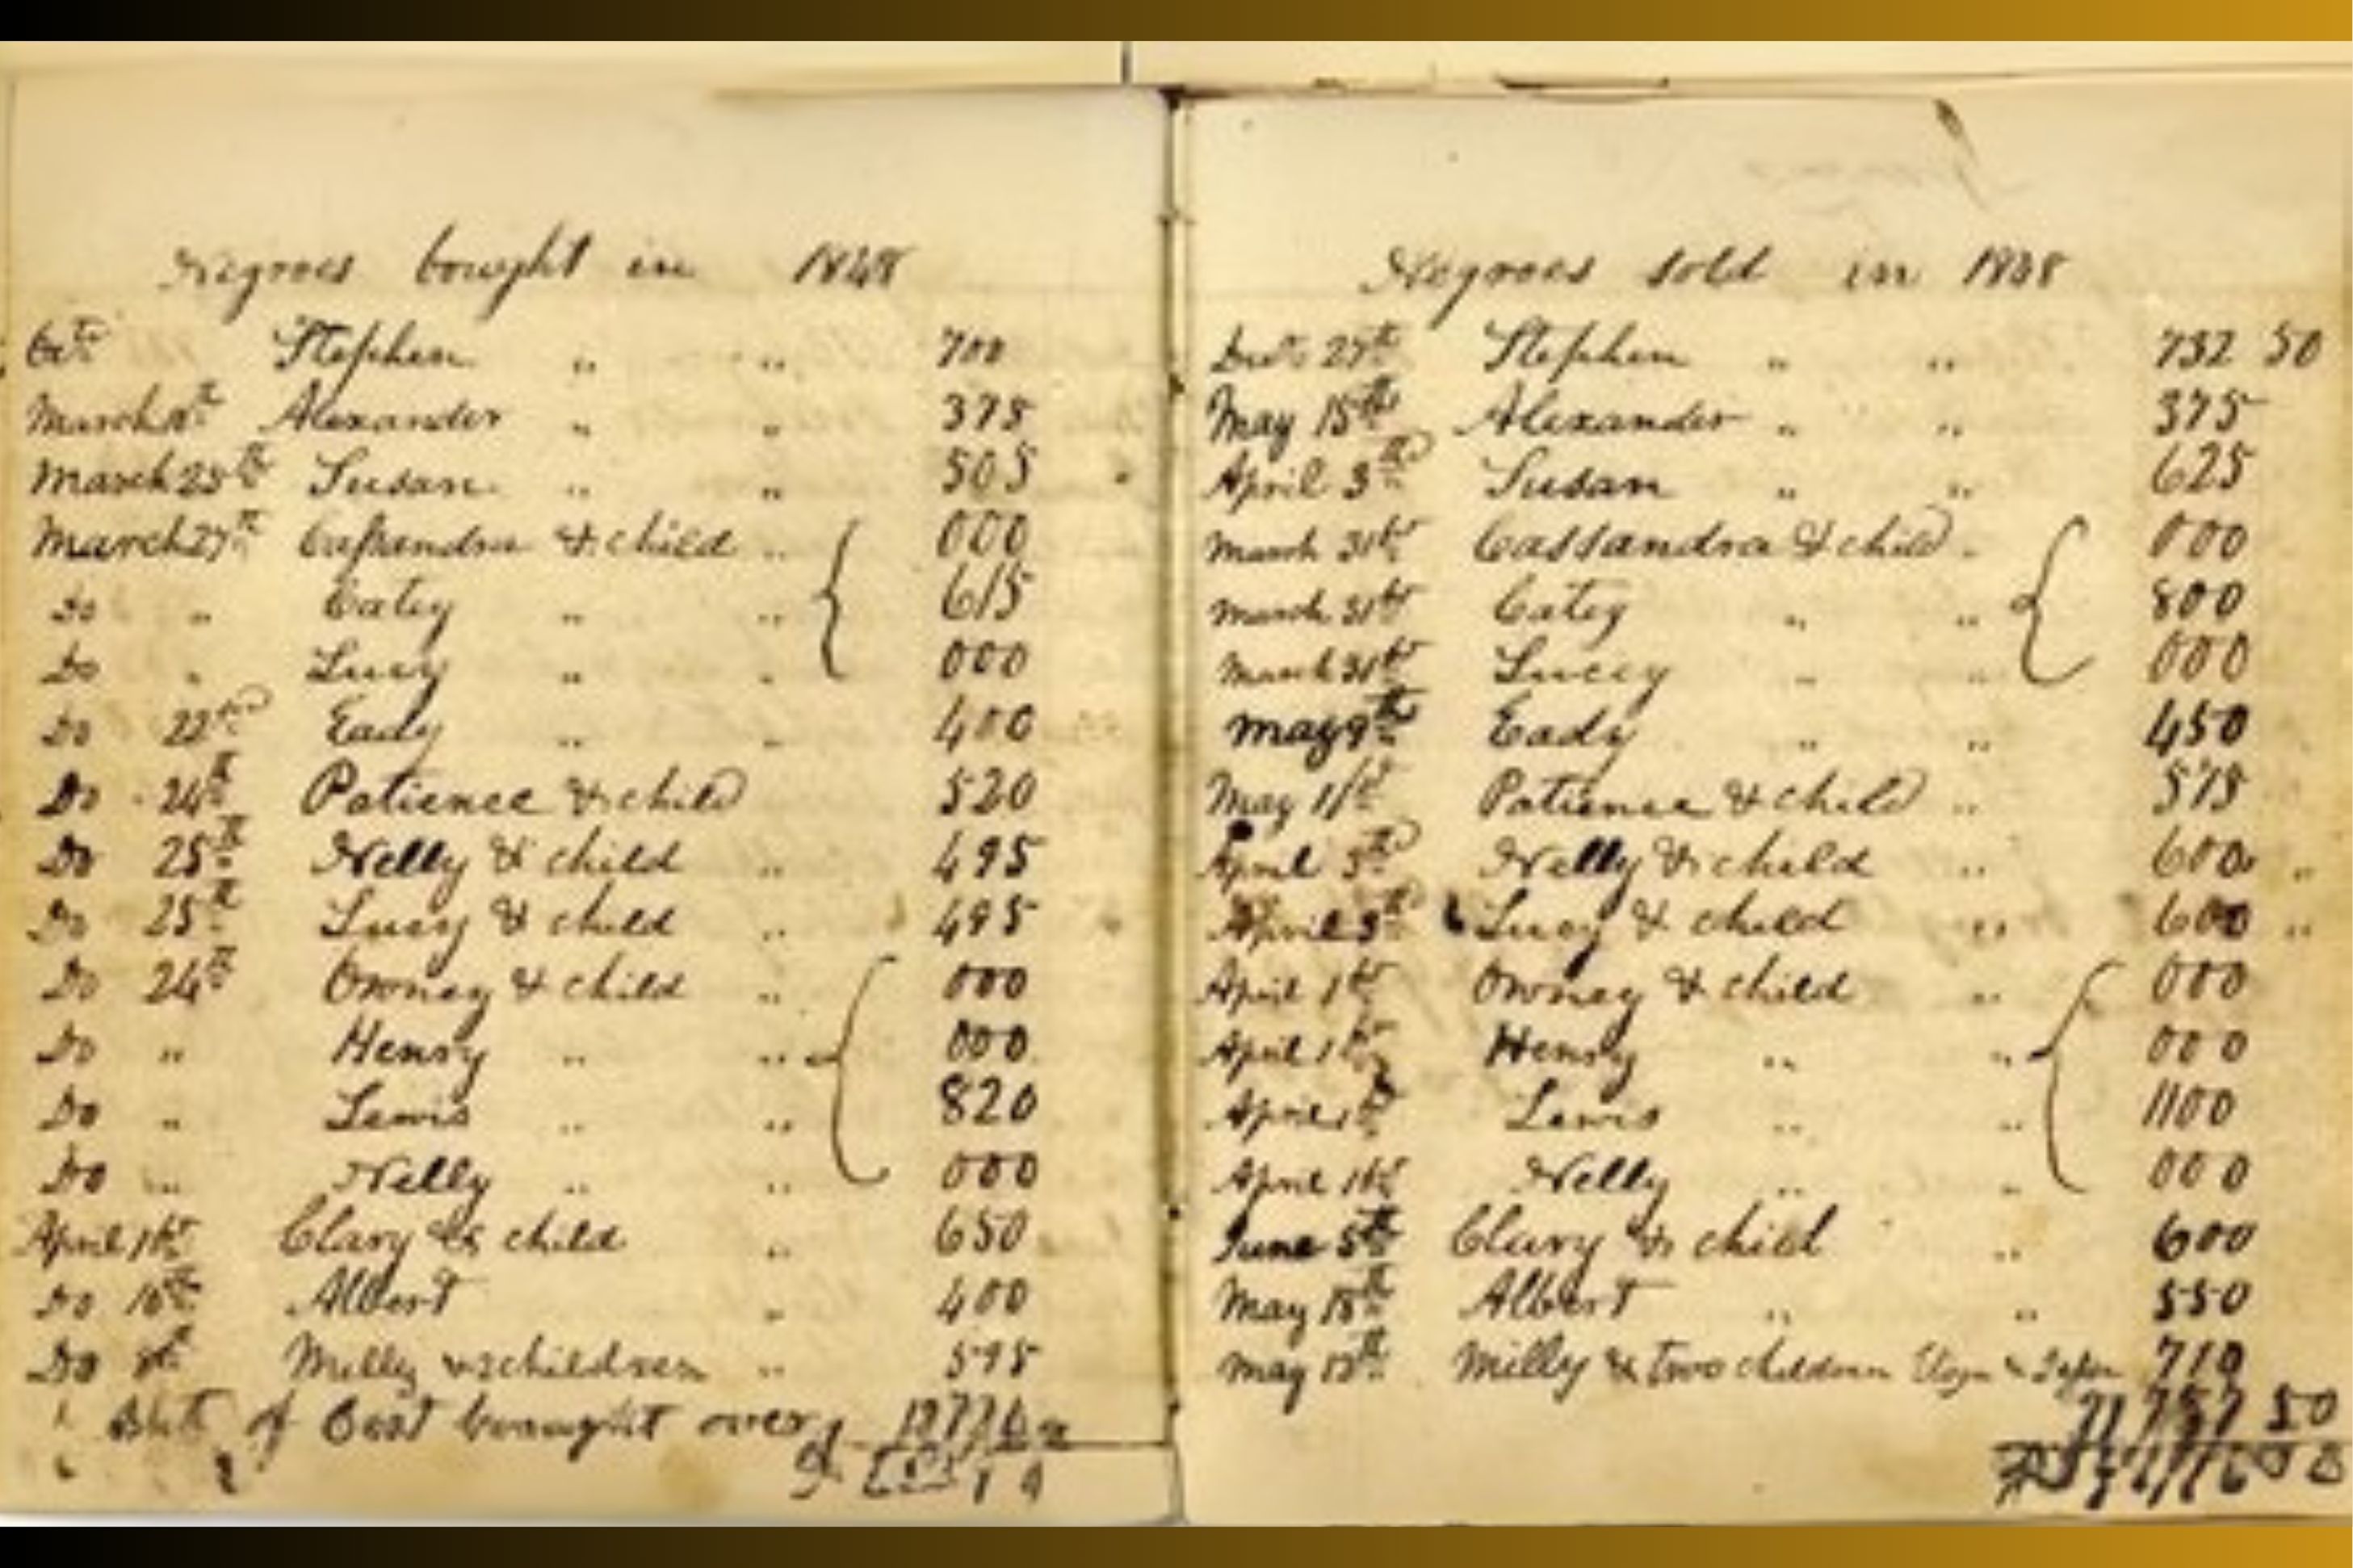 Negroes bought in 1848
Octr Stephen " " 700
March 8th Alexander " " 375
March 25th Susan " " 505
March 27th Cassandra & child " 000
Do " Catey " " 615
Do " Lucy " " 000
Do 22nd Eady " " 400
Do 24th Patience & child 520
Do 25th Nelly & child " 495
Do 25th Lucy & child " 495
Do 24th Owney & child " 000
Do " Henry " " 000
Do " Lewis " " 820
Do " Nelly " " 000
April 1st Clary & child " 650
Do 10th Albert " 400
Do 8th Milly & children " 595
of Cost brought over
Negroes sold in 1848
27th Stephen " " 732 50
May 15th Alexander " " 375
April 3rd Susan " " 625
March 31st Cassandra & child " 000
March 31st Catey " " 800
March 31st Lucey " " 000
May 9th Eady " " 450
May 1st Patience & child " 575
April 3rd Nelly & child " 600 "
April 3rd Lucy & child " 600 "
April 1st Owney & child " 000
April 1st Henry " " 000
April 1st Lewis " " 1100
April 1st Nelly " " 000
June 5th Clary & child " 600
May 15th Albert " " 550
May 13th Milly & two children 710
50